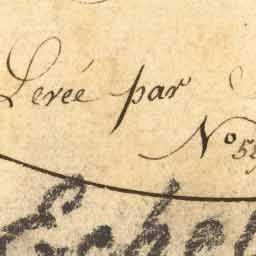 Levée par
N° 59
Echel